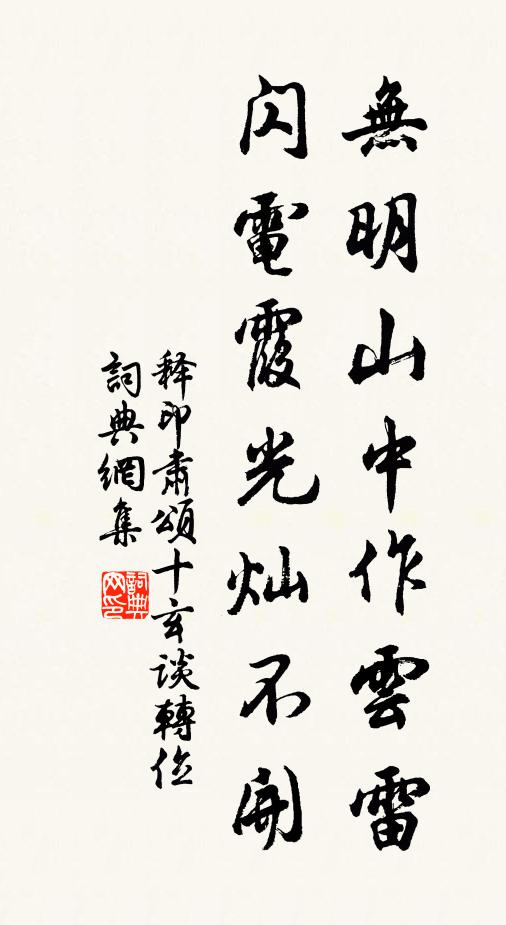 無明山中作雲雷
閃電霞光灿不開
释印肃頌十玄談轉位
詞典網集
詞典网印